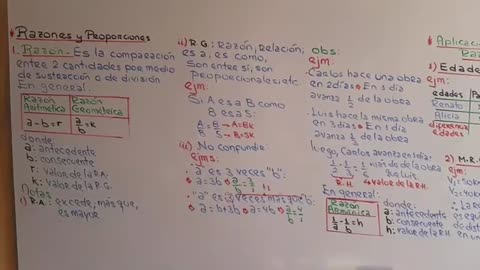 * Razones y Proporciones
1. Razón.- Es la comparación
entre 2 cantidades por medio
de sustracción o división
En general:
Razón Aritmética
Razón Geométrica
a-b=r
a/b=k
donde:
a: antecedente
b: consecuente
r: valor de la R.A.
k: valor de la R.G.
Notas
i) R.A.: excede, más que,
es mayor
ii) R.G: razón, relación;
es a, es como,
son entre sí, son
proporcionales; etc.
ejm:
Si A es a B como
8 es a 5:
A/B = 8/5 → A=8k
→ B=5k
iii) No confundir:
ejms:
- "a" es 3 veces "b":
a=3b a/b=3/1
- "a" es 3 veces más que "b":
a=b+3b a=4b a/b=4/1
obs:
ejm:
- Carlos hace una obra
en 2 días En 1 día
avanza 1/2 de la obra
- Luis hace la misma obra
en 3 días En 1 día
avanza 1/3 de la obra
luego, Carlos avanza en 1 día:
1/2 - 1/3 = 1/6 más de la obra
que Luis
R.H. valor de la R.H.
En general:
Razón Armónica
1/a - 1/b = h
donde:
a: antecedente
b: consecuente
h: valor de la R.H
* Aplicacio
1) Edade
ejm:
edades Pa
Renato
Alicia
diferencia
edades
2) M.R.
ejm: